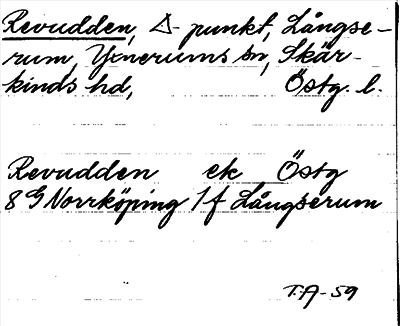 Revudden, Δ-punkt, Långse-
rum, Yxnerums sn, Skär-
kinds hd, Östg. l.
Revudden ek Östg
8 G Norrköping 1f Långserum
T.A-59